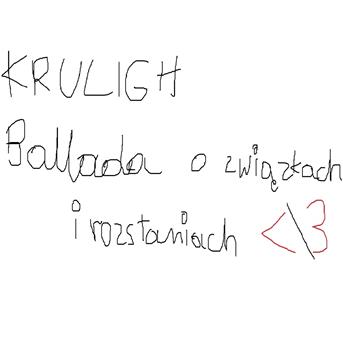 KRULIGH
Ballada o związkach
i rozstaniach <\3